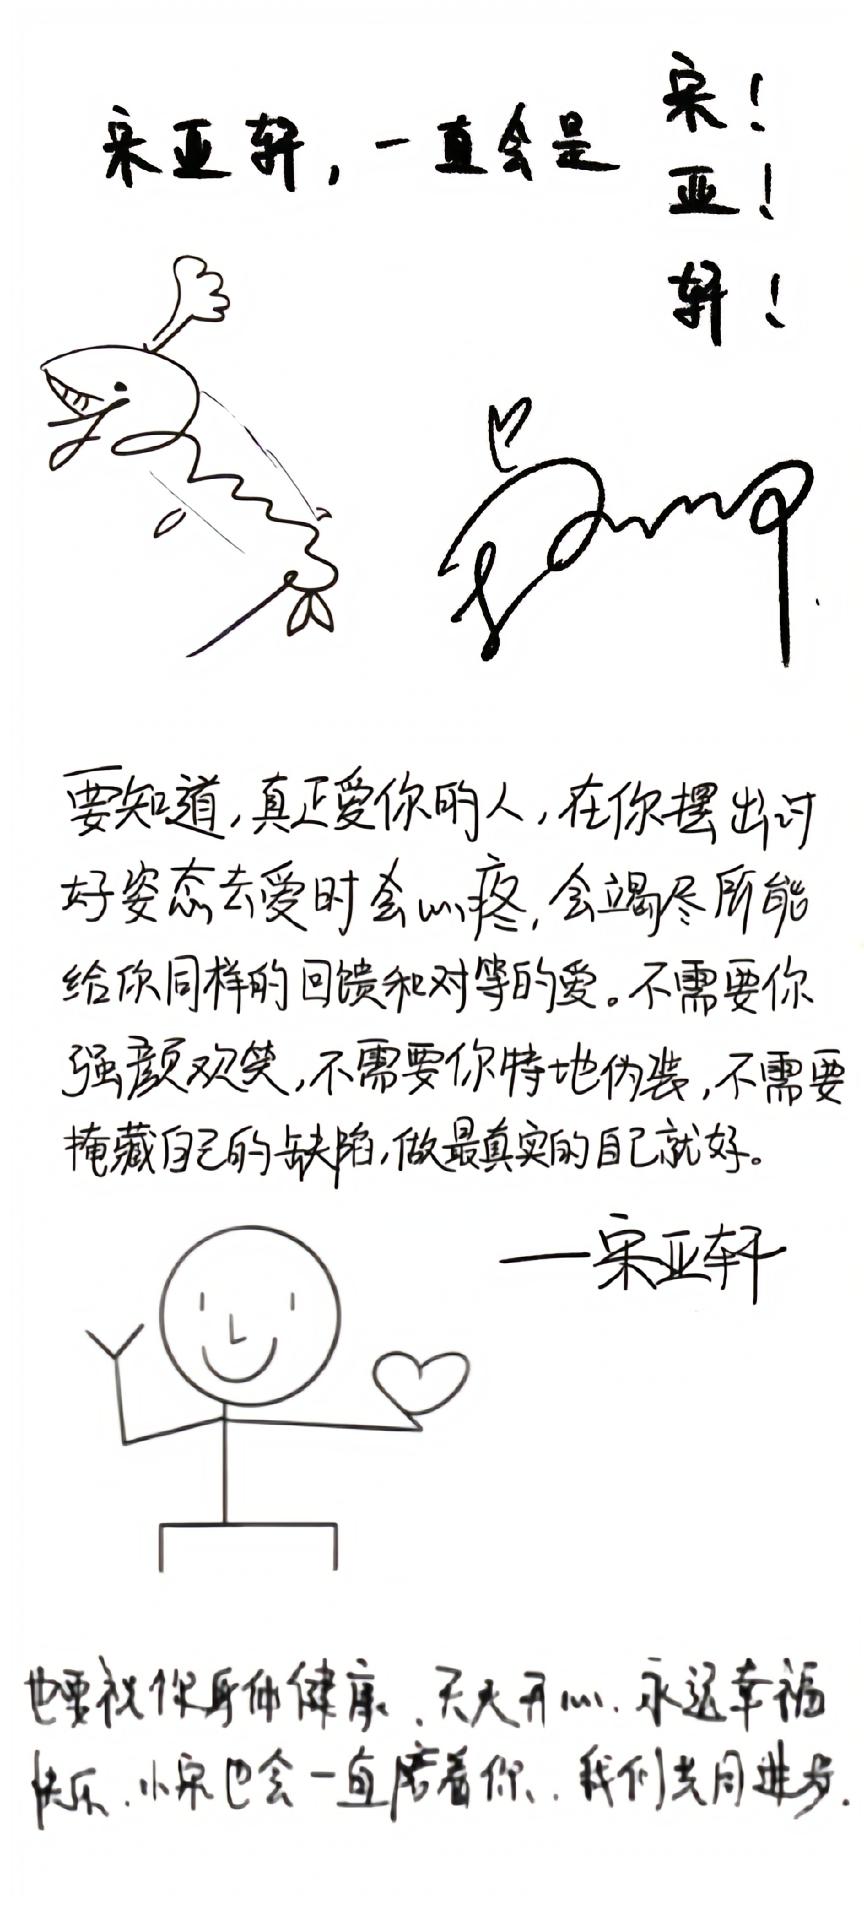 宋亚轩,一直会是
宋!
亚!
轩!
要知道,真正爱你的人,在你摆出讨
好姿态去爱时会心疼,会竭尽所能
给你同样的回馈和对等的爱。不需要你
强颜欢笑,不需要你特地伪装,不需要
掩藏自己的缺陷,做最真实的自己就好。
—宋亚轩
也要祝你身体健康、天天开心、永远幸福
快乐、小宋也会一直陪着你、我们共同进步.